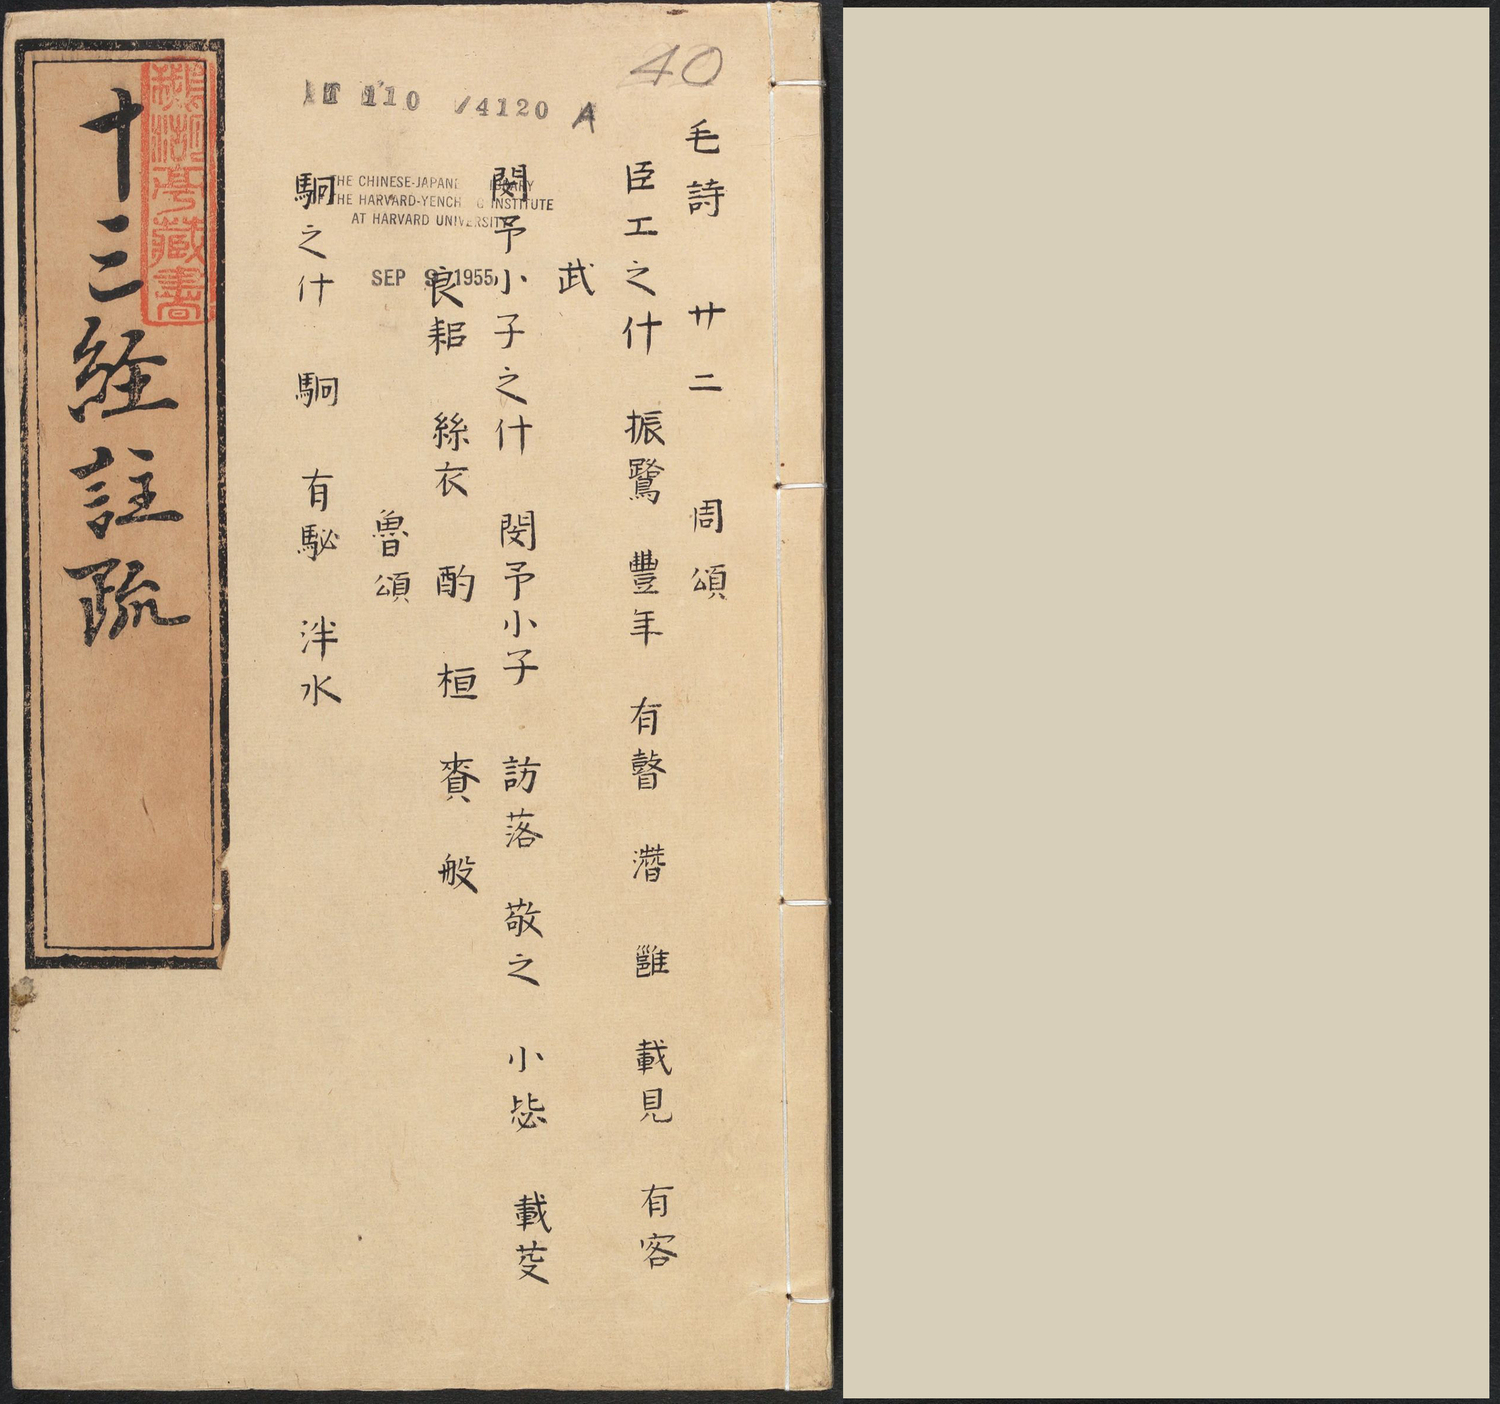 40
T 110 /4120 A
毛詩 廿二 周頌
臣工之什 振鷺 豐年 有瞽 潛 雝 載見 有客
武
閔予小子之什 閔予小子 訪落 敬之 小毖 載芟
良耜 絲衣 酌 桓 賚 般
魯頌
駉之什 駉 有駜 泮水
THE CHINESE-JAPANESE LIBRARY
OF THE HARVARD-YENCHING INSTITUTE
AT HARVARD UNIVERSITY
SEP 9 1955
十三經註疏
鵝湖亭藏書